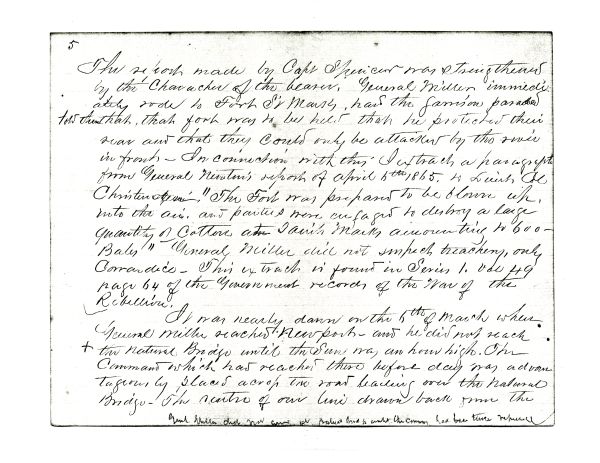 5
The report made by Capt Spencer was strengthened
by the Character of the bearer. General Miller immedi
ately rode to Fort St Marks, had the garrison paraded
told them that, that fort was to be held that he protected their
rear and that they could only be attacked by the river
in front - In connection with this I extract a paragraph
from General Newton's report of April 5th 1865. to Lieut Col
Christensen. " The Fort was prepared to be blown up,
into the air. and parties were engaged to destroy a large
quantity of Cotton at Saint Marks amounting to 600 -
Bales " General Miller did not suspect treachery, only
Cowardice - This extract is found in Series 1. Vol 49
page 64 of the Government records of the War of the
Rebellion.
It was nearly dawn on the 6th of March when
General Miller reached Newport - and he did not reach
+ the Natural Bridge until the Sun was an hour high. The
Command which had reached there before day was advan
tageously placed across the road leading over the Natural
Bridge - The centre of our line drawn back from the
Genl Miller did not until the enemy had been twice repulsed